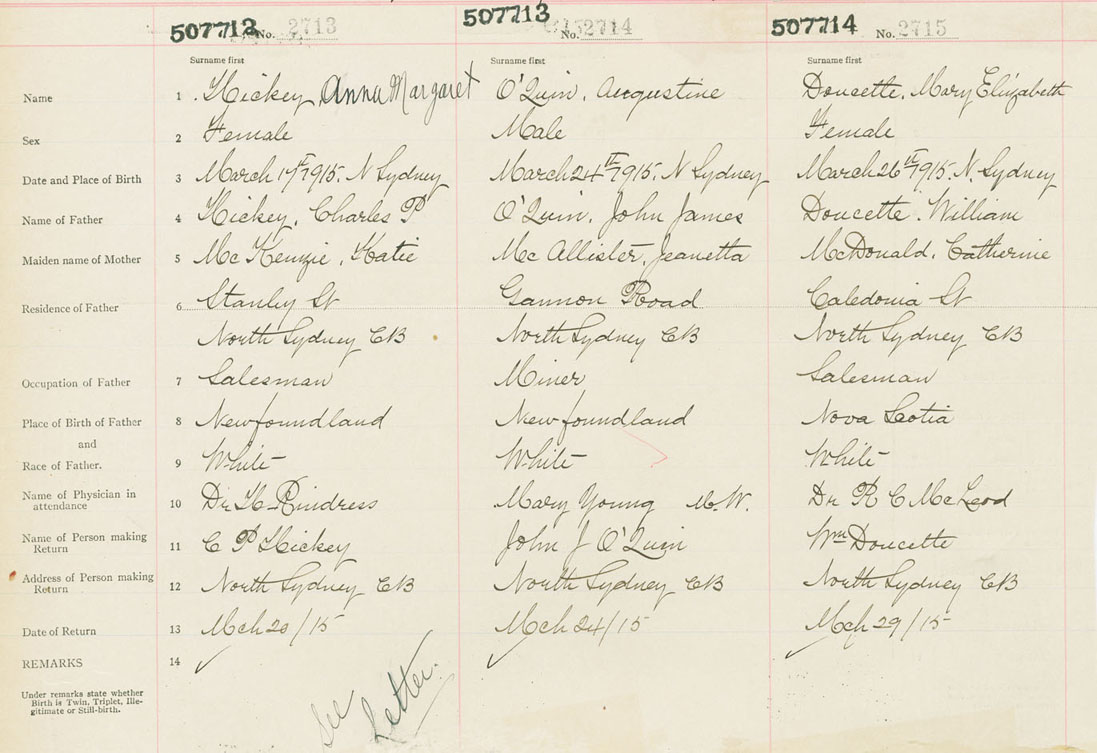 507713 No. 2713 507713 No. 2714 507714 No. 2715
Surname first Surname first Surname first
Name 1 Hickey, Anna Margaret O'Quin, Augustine Doucette, Mary Elizabeth
Sex 2 Female Male Female
Date and Place of Birth 3 March 17th 1915. N Sydney March 24th 1915. N Sydney March 26th 1915. N. Sydney
Name of Father 4 Hickey, Charles P O'Quin, John James Doucette, William
Maiden name of Mother 5 McKenzie, Katie McAllister, Jeanetta McDonald, Catherine
Residence of Father 6 Stanley St Gannon Road Caledonia St
North Sydney CB North Sydney CB North Sydney CB
Occupation of Father 7 Salesman Miner Salesman
Place of Birth of Father 8 Newfoundland Newfoundland Nova Scotia
and
Race of Father. 9 White White White
Name of Physician in attendance 10 Dr H Rindress Mary Young M.W. Dr R C McLeod
Name of Person making Return 11 C P Hickey John J O'Quin Wm Doucette
Address of Person making Return 12 North Sydney CB North Sydney CB North Sydney CB
Date of Return 13 Mch 20/15 Mch 24/15 Mch 29/15
REMARKS 14
Under remarks state whether
Birth is Twin, Triplet, Ille-
gitimate or Still-birth.
See Letter.